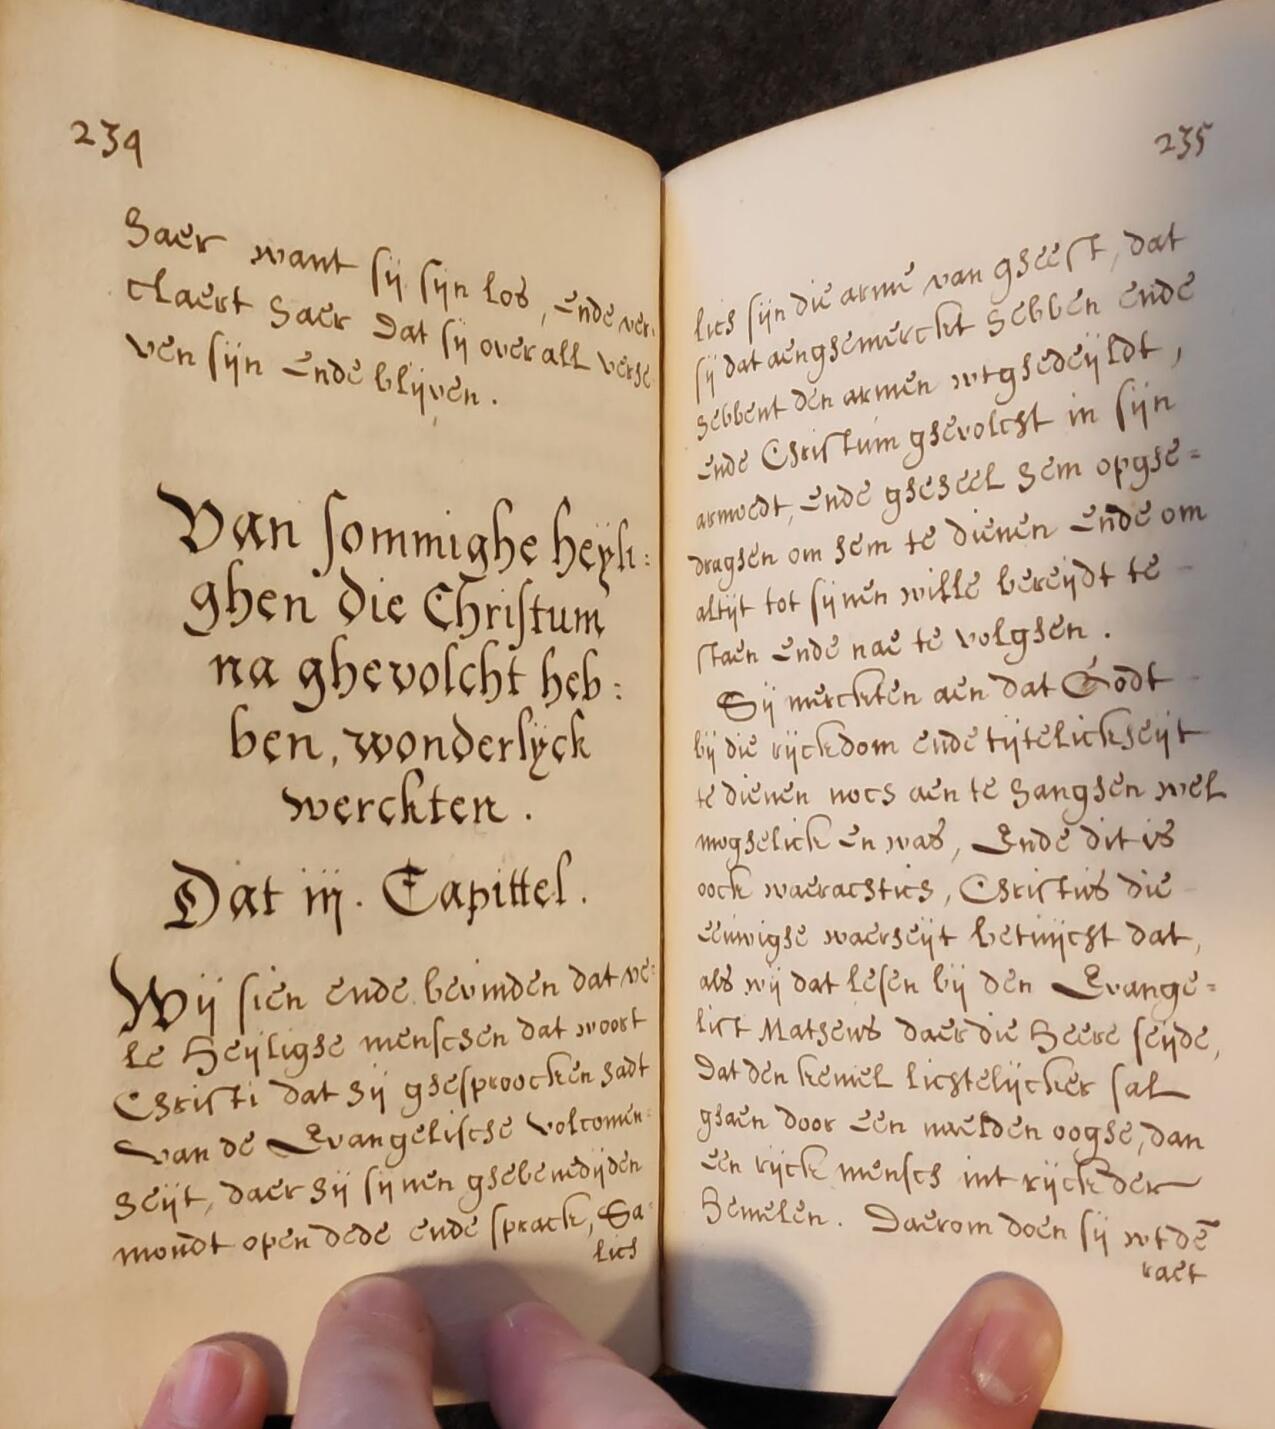 234
haer want sij sijn los, ende ver:
claert haer dat sij over all verhe
ven sijn ende blijven.
Van sommighe heyli:
ghen die Christum
na ghevolcht heb:
ben, wonderlyck
werckten.
Dat iij. Capittel.
Wij sien ende bevinden dat ve:
le heylighe menschen dat woort
Christi dat hij ghesproocken hadt
van de Evangelische volcomen:
heijt, daer hij sijnen ghebenedijden
mondt open dede ende sprack, Sa:
lich
235
lich sijn die arme van gheest, dat
sij dat aenghemerckt hebben ende
hebbent den armen wtghedeijldt,
ende Christum ghevolcht in sijn
armoedt, ende gheheel hem opghe=
draghen om hem te dienen ende om
altijt tot sijnen wille bereijdt te
staen ende nae te volghen.
Sij merckten aen dat Godt
bij die rijckdom ende tijtelickheijt
te dienen noch aen te hanghen wel
moghelick en was, Ende dit is
oock waerachtich, Christus die
eeuwighe waerheijt betuijcht dat,
als wij dat lesen bij den Evange=
list Matheus daer die Heere seijde,
Dat den kemel lichtelijcker sal
ghaen door een naelden ooghe, dan
een rijck mensch int rijck der
Hemelen. Daerom doen sij wt dē
raet